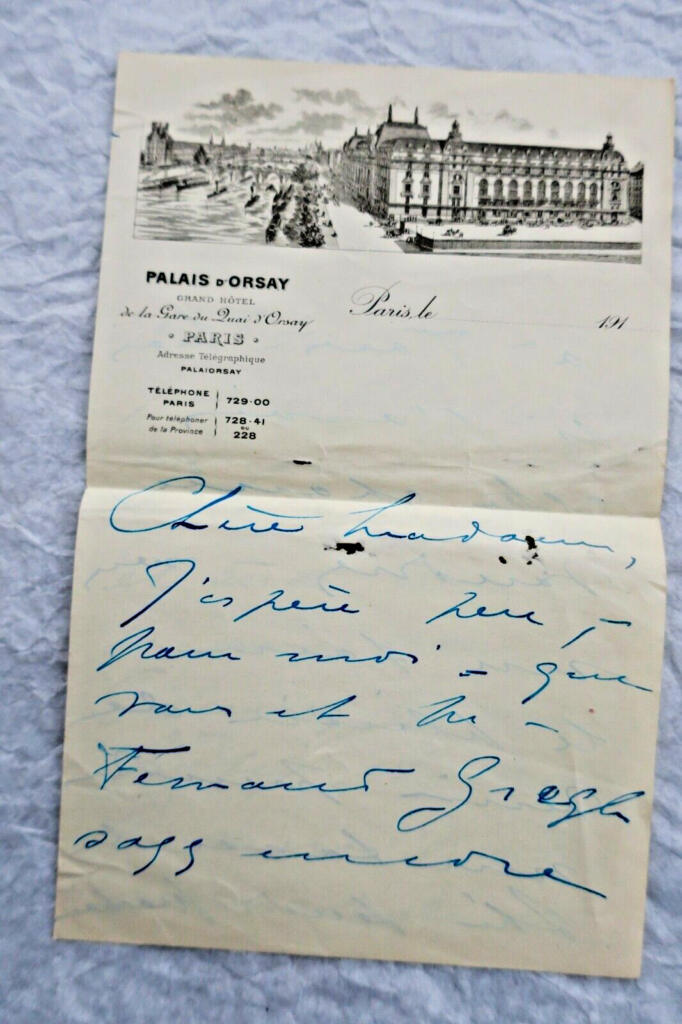 PALAIS D'ORSAY
GRAND HÔTEL
de la Gare du Quai d'Orsay
• PARIS •
Adresse Télégraphique
PALAIORSAY
TÉLÉPHONE PARIS 729-00
Pour téléphoner de la Province 728-41 ou 228
Paris, le 191
Chère Madame,
J'espère peu, –
pour moi – que
vous et
Fernand Gregh
soyez encore